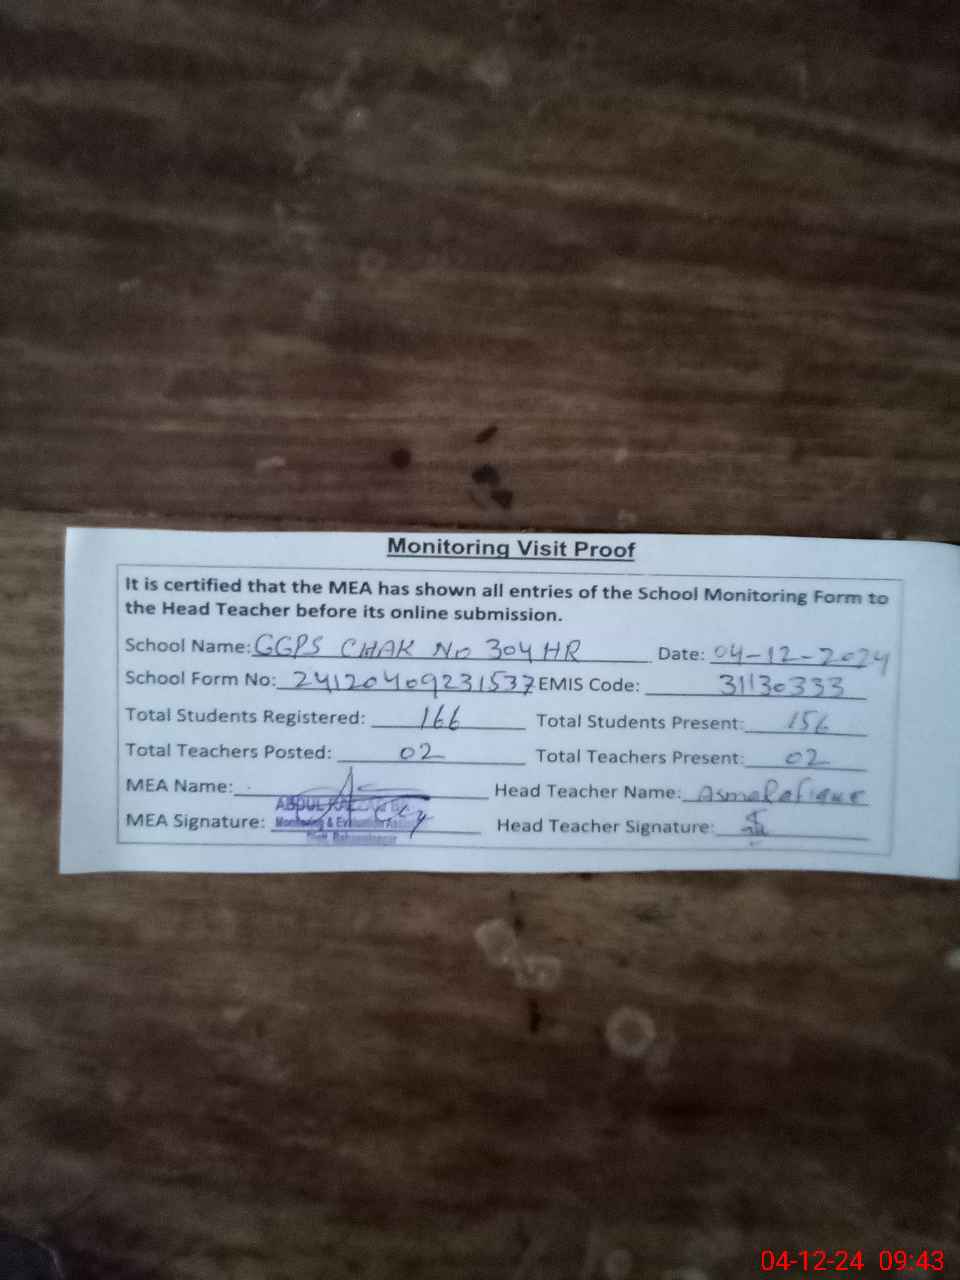 Monitoring Visit Proof
It is certified that the MEA has shown all entries of the School Monitoring Form to
the Head Teacher before its online submission.
School Name: GGPS CHAK No 304 HR Date: 04-12-2024
School Form No: 2412040923153 7 EMIS Code: 31130333
Total Students Registered: 166 Total Students Present: 156
Total Teachers Posted: 02 Total Teachers Present: 02
MEA Name: Head Teacher Name: Asma Rafique
ABDUL
MEA Signature: Monitoring & Evaluation Head Teacher Signature:
04-12-24 09:43